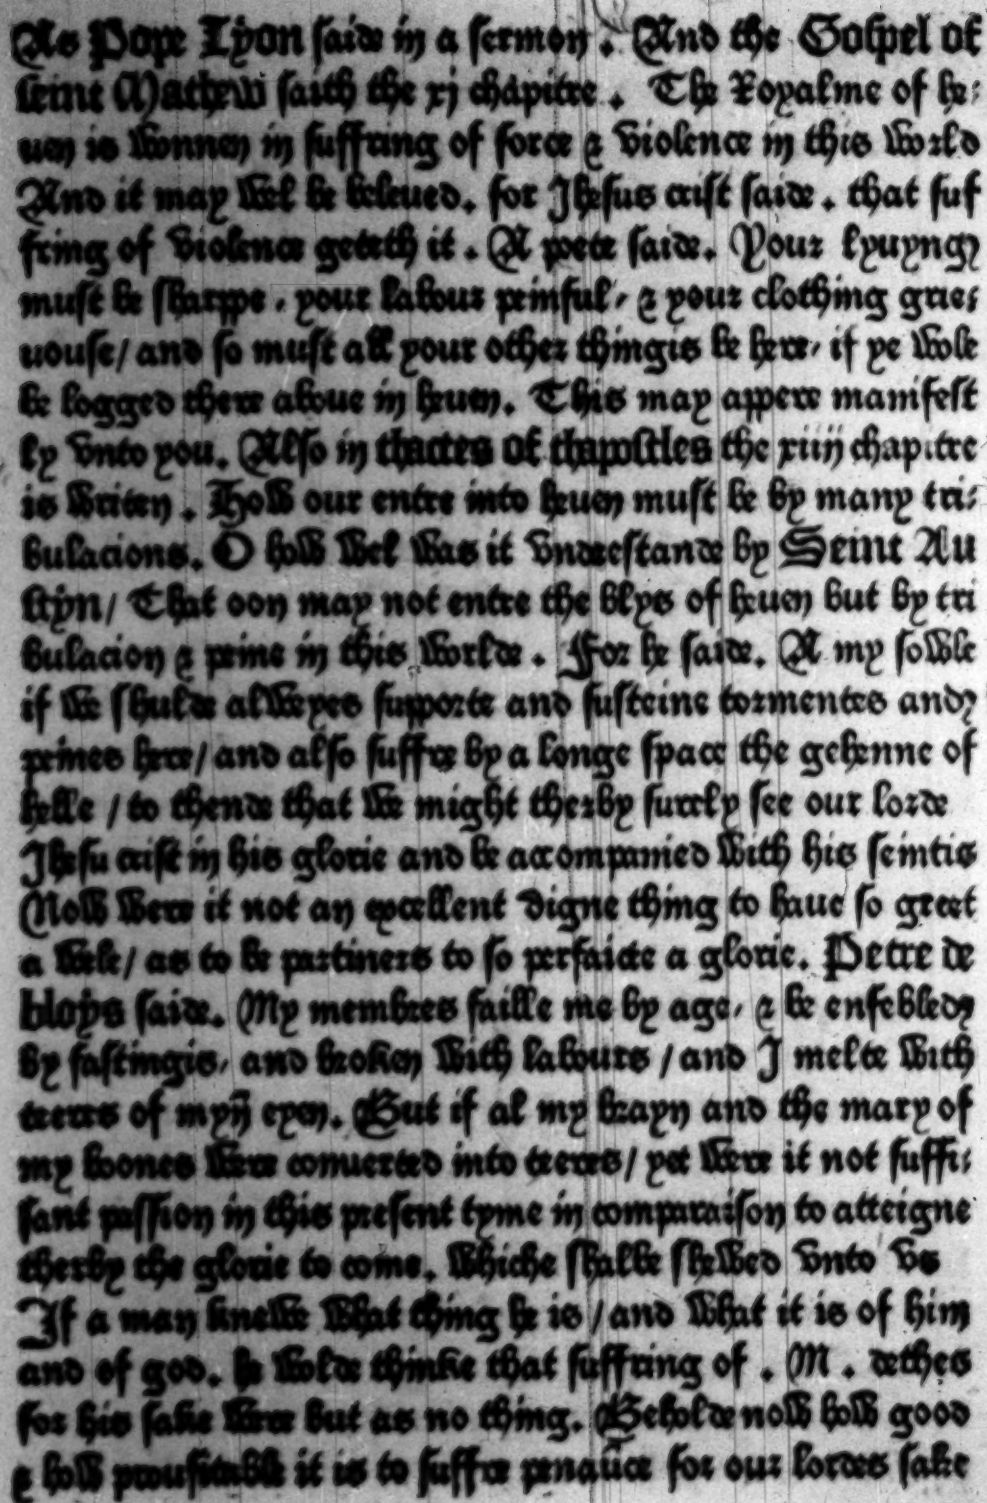 As Pope Lyon saide in a sermon . And the Gospel of
seint Mathew saith the xj chapitre . The Royalme of he⸗
uen is wonnen in suffring of force & violence in this world
And it may wel be beleued. for Jhesus crist saide . that suf
fring of violence geteth it . A poete saide. Your lyuyng
must be sharppe , your labour peinful , & your clothing grie⸗
uouse / and so must all your other thingis be here , if ye wole
be logged there aboue in heuen. This may appere manifest
ly vnto you. Also in thactes of thapostles the xiiij chapitre
is writen . How our entre into heuen must be by many tri⸗
bulacions. O how wel was it vnderstande by Seint Au
styn / That oon may not entre the blys of heuen but by tri
bulacion & peine in this worlde . For he saide. A my sowle
if we shulde alweyes supporte and susteine tormentes and
peines here / and also suffre by a longe space the gehenne of
helle / to thende that we might therby surely see our lorde
Jhesu crist in his glorie and be accompanied with his seintis
Now were it not an excellent digne thing to haue so greet
a wele / as to be partiners to so perfaicte a glorie. Petre de
bloys saide. My membres faille me by age , & be enfebled
by fastingis , and broken with labours / and I melte with
teeres of myn̄ eyen. But if al my brayn and the mary of
my boones were conuerted into teeres / yet were it not suffi⸗
sant passion in this present tyme in comparaison to atteigne
therby the glorie to come. Whiche shalbe shewed vnto vs
If a man knewe what thing he is / and what it is of him
and of god. he wolde thinke that suffring of . M . dethes
for his sake were but as no thing. Beholde now how good
& how proufitable it is to suffre penaūce for our lordes sake